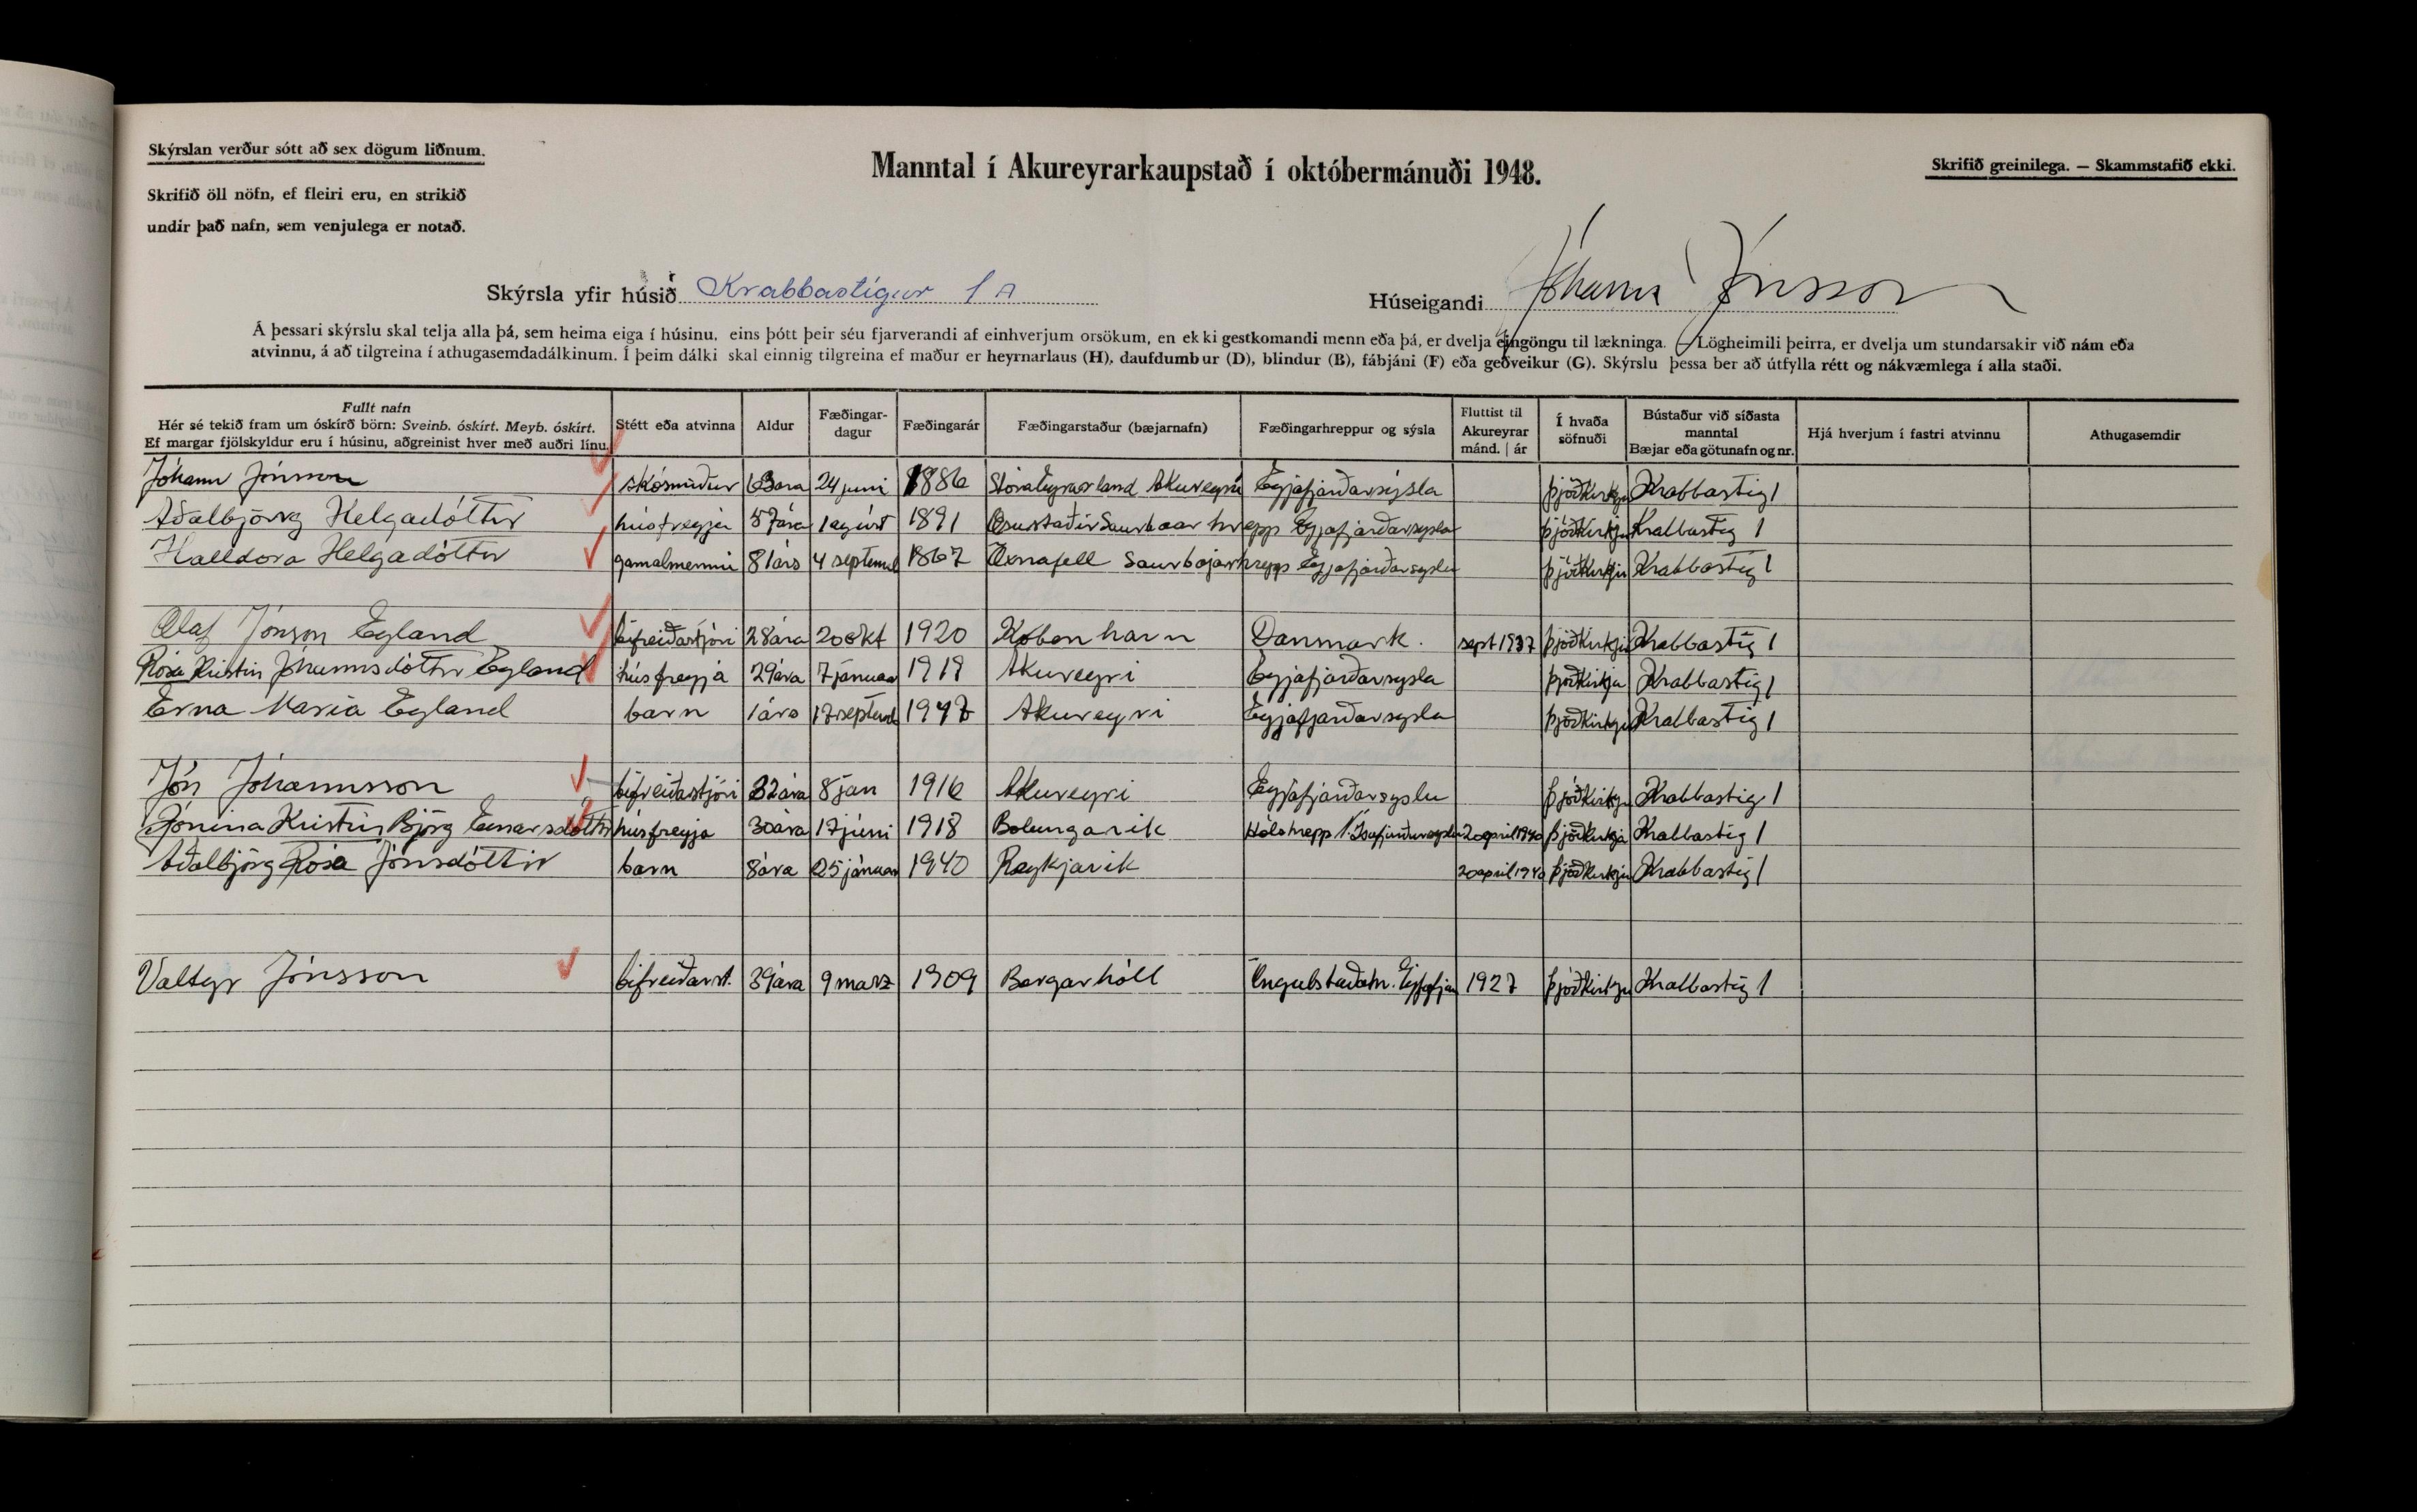 Skýrslan verður sótt að sex dögum liðnum.
Skrifið öll nöfn, ef fleiri eru, en strikið
undir það nafn, sem venjulega er notað.
Manntal í Akureyrarkaupstað í októbermánuði 1948.
Skrifið greinilega. — Skammstafið ekki.
Skýrsla yfir húsið Krabbastígur 1 A
Húseigandi Jóhann Jónsson
Á þessari skýrslu skal telja alla þá, sem heima eiga í húsinu, eins þótt þeir séu fjarverandi af einhverjum orsökum, en ekki gestkomandi menn eða þá, er dvelja eingöngu til lækninga. Lögheimili þeirra, er dvelja um stundarsakir við nám eða
atvinnu, á að tilgreina í athugasemdadálkinum. Í þeim dálki skal einnig tilgreina ef maður er heyrnarlaus (H), daufdumbur (D), blindur (B), fábjáni (F) eða geðveikur (G). Skýrslu þessa ber að útfylla rétt og nákvæmlega í alla staði.
Fullt nafn
Hér sé tekið fram um óskírð börn: Sveinb. óskírt. Meyb. óskírt.
Ef margar fjölskyldur eru í húsinu, aðgreinist hver með auðri línu.
Stétt eða atvinna
Aldur
Fæðingar-
dagur
Fæðingarár
Fæðingarstaður (bæjarnafn)
Fæðingarhreppur og sýsla
Fluttist til
Akureyrar
mánd. | ár
Í hvaða
söfnuði
Bústaður við síðasta
manntal
Bæjar eða götunafn og nr.
Hjá hverjum í fastri atvinnu
Athugasemdir
Jóhann Jónsson skósmiður 63 ara 24 juni 1886 Akureyri Eyjafjarðarsýsla þjóðkirkju Krabbastig 1
Aðalbjörg Helgadóttir húsfreyja 57 ára 1 agúst 1891 Saurbaar hrepp Eyjafjarðarsysla þjóðkirkju Krabbastig 1
Halldora Helgadóttir gamalmenni 81 árs 4 septemb 1867 Öxnafell Saurbajarhrepp Eyjafjarðarsyslu þjóðkirkju Krabbastig 1
Olaf Jónson Egland bifreiðastjóri 28 ára 20 okt 1920 Köbenhavn Danmark. sept 1937 þjóðkirkju Krabbastig 1
Rósa Kristin Jóhannsdóttir Egland húsfreyja 29 ára 7 januar 1919 Akureyri Eyjafjarðarsysla þjóðkirkja Krabbastig 1
Erna Maria Egland barn 1 árs 17 septemb 1947 Akureyri Eyjafjarðarsysla þjóðkirkju Krabbastig 1
Jón Jóhannsson bifreiðastjóri 32 ára 8 jan 1916 Akureyri Eyjafjarðarsyslu þjóðkirkju Krabbastig 1
Jónina Kristin Björg Einarsdóttir húsfreyja 30 ára 17 júni 1918 Bolungarvik Hólshrepp N. Isafjarðarsyslu 20 april 1940 þjóðkirkja Krabbastig 1
Aðalbjörg Rósa Jónsdóttir barn 8 ára 25 januar 1940 Reykjavik 20 april 1940 þjóðkirkju Krabbastig 1
Valtyr Jónsson bifreiðarst. 39 ára 9 marz 1909 Borgarhóll Öngulstaðahr. Eyjafjar 1927 þjóðkirkju Krabbastig 1